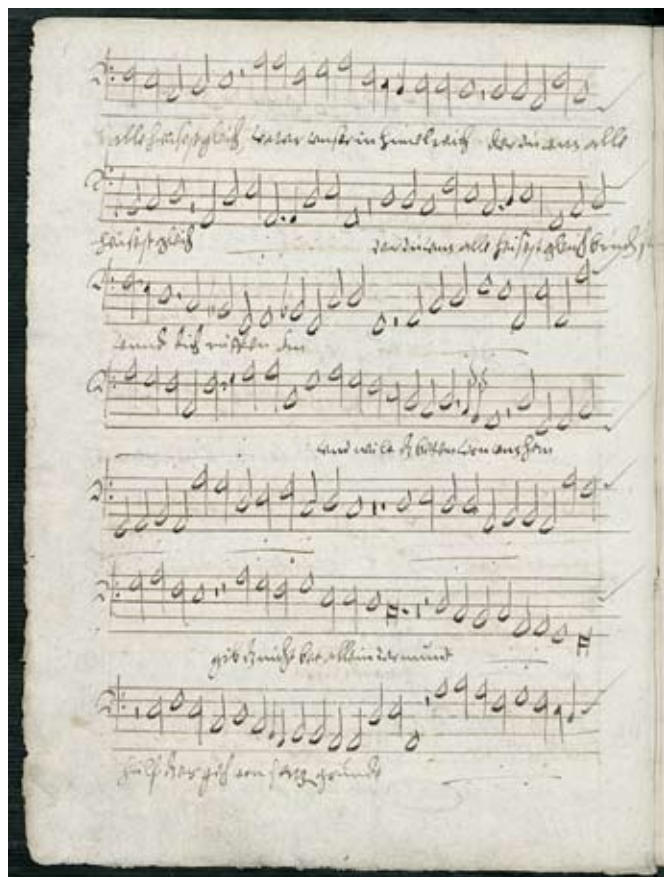 alle heissest gleich vatter unser im himelreich der du uns alle
heissest gleich der du uns alle heissest gleich bruder
unnd dich ruffen an
und wilt das betten von uns han
gib das nicht bet allein der mund
hilf das geh von hertzen grundt